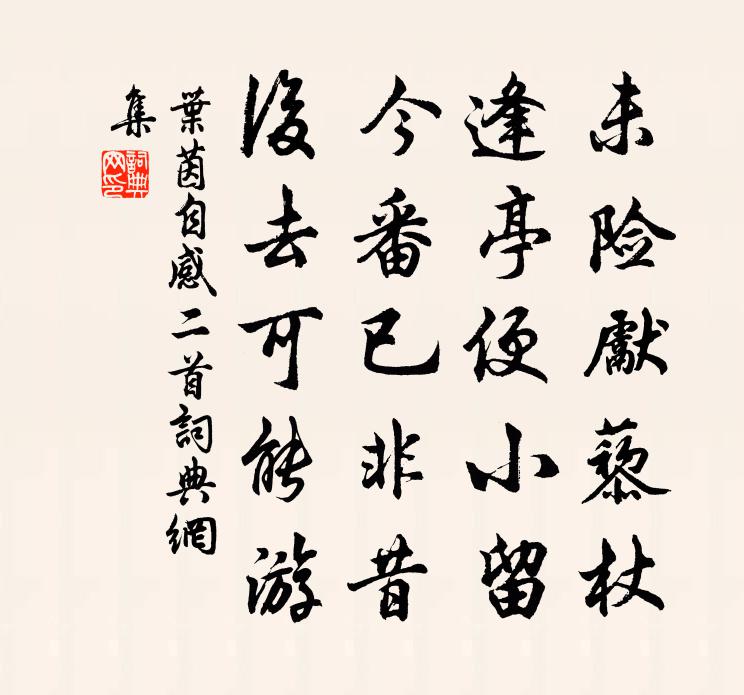 未险献藜杖
逢亭便小留
今番已非昔
後去可能游
葉茵自感二首詞典網
集
詞典
网印